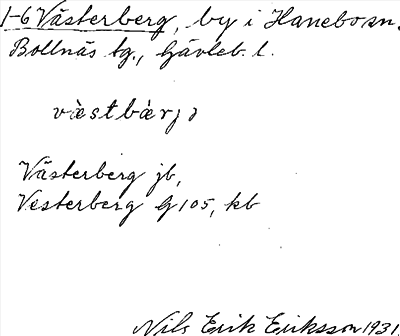 1-6 Västerberg, by i Hanebo sn.
Bollnäs tg., Gävleb. l.
Västerberg jb,
Vesterberg G 105, kb
Nils Erik Eriksson 1931.